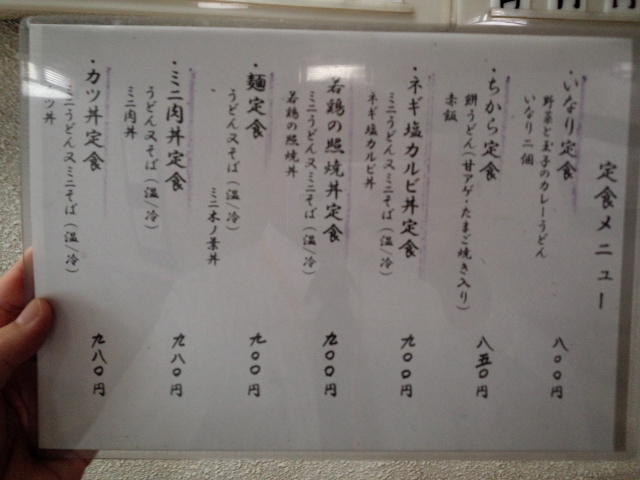 定食メニュー
・いなり定食
野菜と玉子のカレーうどん
いなり二個
八〇〇円
・ちから定食
餅うどん(甘アゲ・たまご焼き入り)
赤飯
八五〇円
・ネギ塩カルビ丼定食
ミニうどん又ミニそば(温/冷)
ネギ塩カルビ丼
九〇〇円
若鶏の照焼丼定食
ミニうどん又ミニそば(温/冷)
若鶏の照焼丼
九〇〇円
・麺定食
うどん又そば(温/冷)
ミニ木ノ葉丼
九〇〇円
・ミニ肉丼定食
うどん又そば(温/冷)
ミニ肉丼
九八〇円
・カツ丼定食
ミニうどん又ミニそば(温/冷)
カツ丼
九八〇円